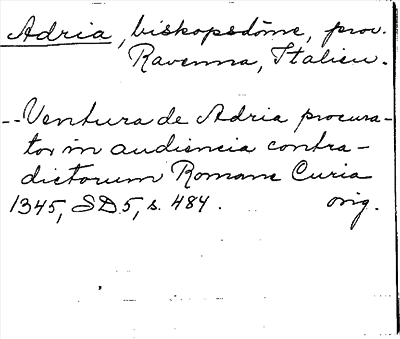 Adria, biskopsdöme, prov.
Ravenna, Italien.
-- Ventura de Adria procura-
tor in audiencia contra-
dictorum Romane Curia
1345, SD5, s. 484. orig.